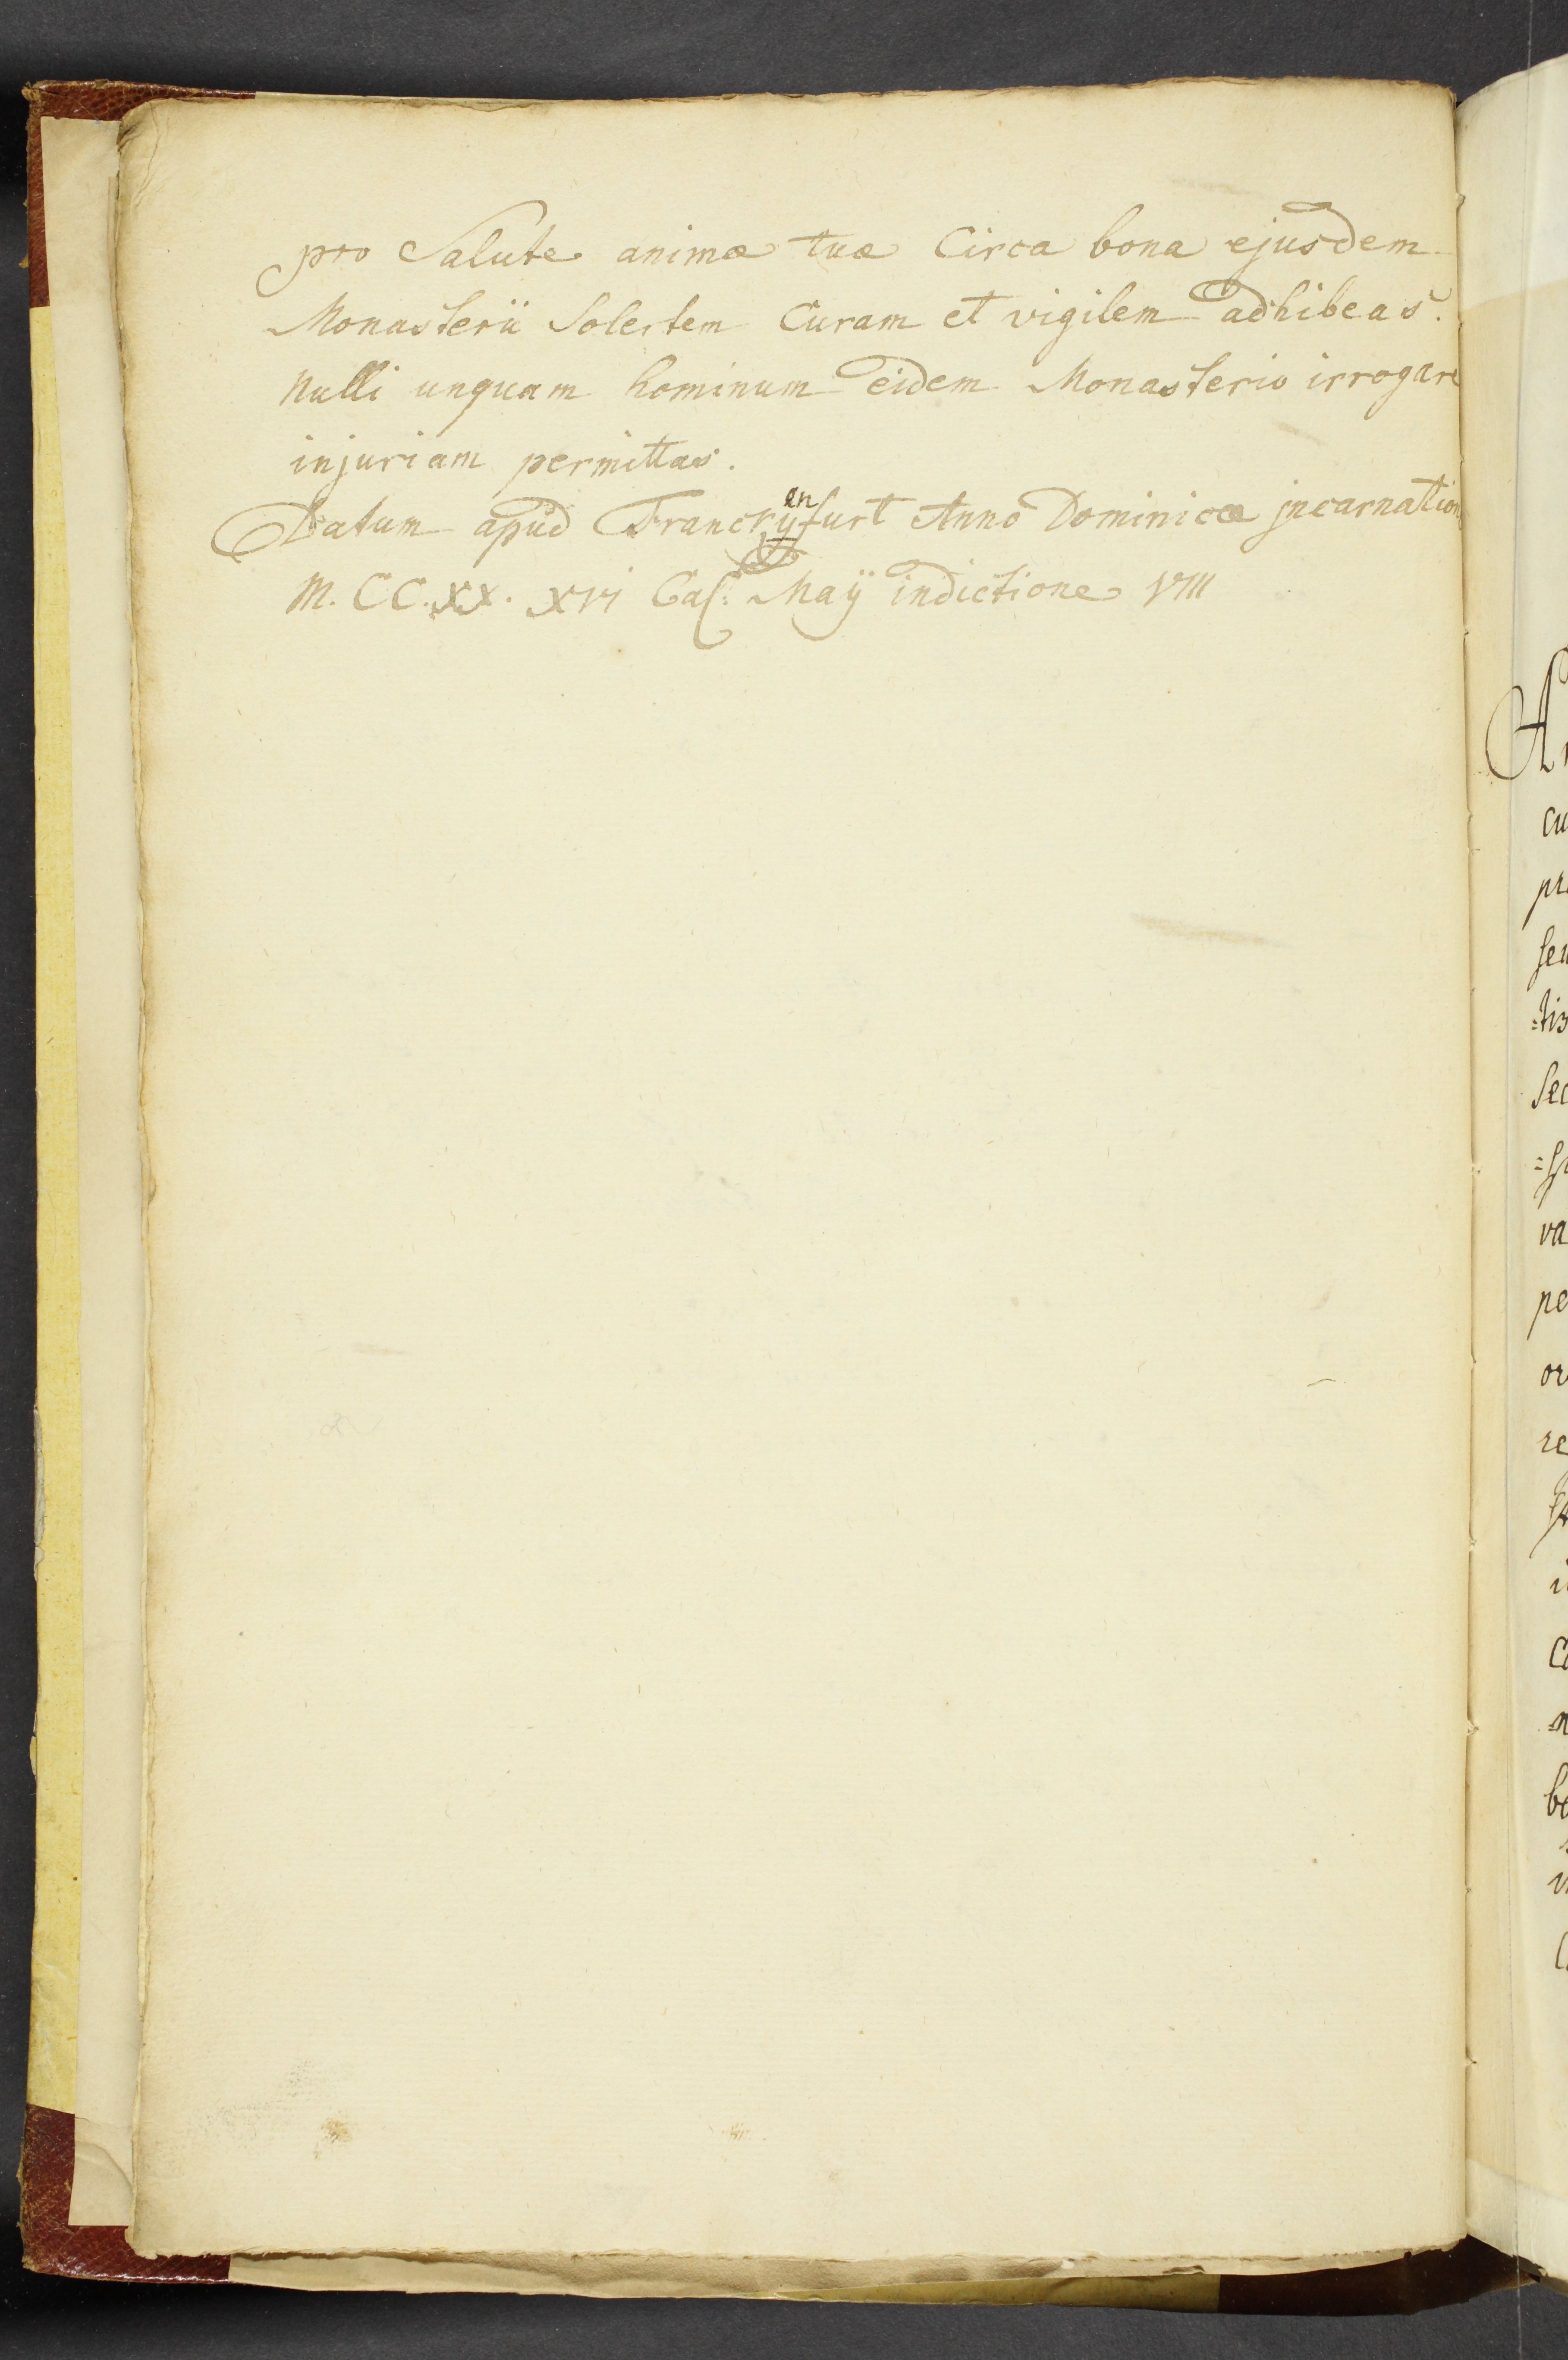 pro Salute animæ tuæ Circa bona ejusdem
Monasterii Solertem Curam et vigilem adhibeas.
Nulli unquam hominum eidem Monasterio irrogare
injuriam permittas.
en
Datum apud Franckyfurt Anno Dominicæ jncarnation
M. CC. XX. XVI Cal: Maÿ indictione VIII
A
cu
pr
sen
=tis
Sec
va
pe
or
re
i
Ca
=n
be